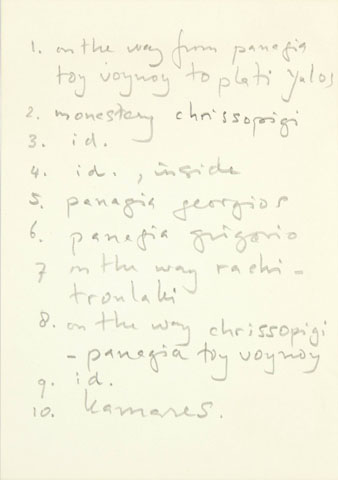 1. on the way from panagia
toy voynoy to plati yalos
2. monestery chrissopigi
3. id.
4. id. , inside
5. panagia georgios
6. panegia grigorio
7 on the way rachi -
troulaki
8. on the way chrissopigi
- panagia toy voynoy
9. id.
10. kamares.